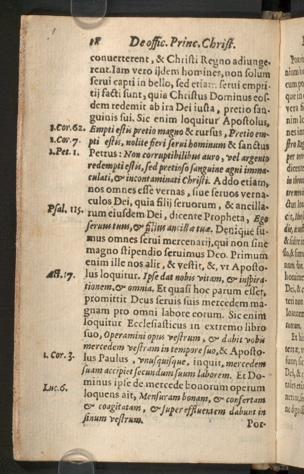 98 De offic. Princ. Christ.
conuerterent, & Christi Regno adiunge-
rent. Iam vero ijdem homines, non solum
serui capti in bello, sed etiam serui empri-
tij facti sunt, quia Christus Dominus eos-
dem redemit ab ira Dei iusta, pretio san-
guinis sui. Sic enim loquitur Apostolus,
1. Cor. 6. Empti estis pretio magno & rursus, Pretio em-
1. Cor. 7. pti estis, nolite fieri serui hominum & sanctus
1. Pet. 1. Petrus: Non corruptibilibus auro, vel argento
redempti estis, sed pretioso sanguine agni imma-
culati, & incontaminati Christi. Addo etiam,
nos omnes esse vernas, siue seruos verna-
culos Dei, quia filij seruorum, & ancilla-
Psal. 115. rum eiusdem Dei, dicente Propheta, Ego
seruus tuus, & filius ancillæ tuæ. Denique su-
mus omnes serui mercenarij, qui non sine
magno stipendio seruimus Deo. Primum
enim ille nos alit, & vestit, &, vt Aposto-
Act. 17. lus loquitur. Ipse dat nobis vitam, & inspira-
tionem, & omnia. Et quasi hoc parum esset,
promittit Deus seruis suis mercedem ma-
gnam pro omni labore eorum. Sic enim
loquitur Ecclesiasticus in extremo libro
suo, Operamini opus vestrum, & dabit vobis
mercedem vestram in tempore suo, & Aposto-
1. Cor. 3. lus Paulus, vnusquisque, inquit, mercedem
suam accipiet secundum suum laborem. Et Do-
Luc. 6. minus ipse de mercede bonorum operum
loquens ait, Mensuram bonam, & confertam
& coagitatam, & supereffluentem dabunt in
sinum vestrum.
Por-